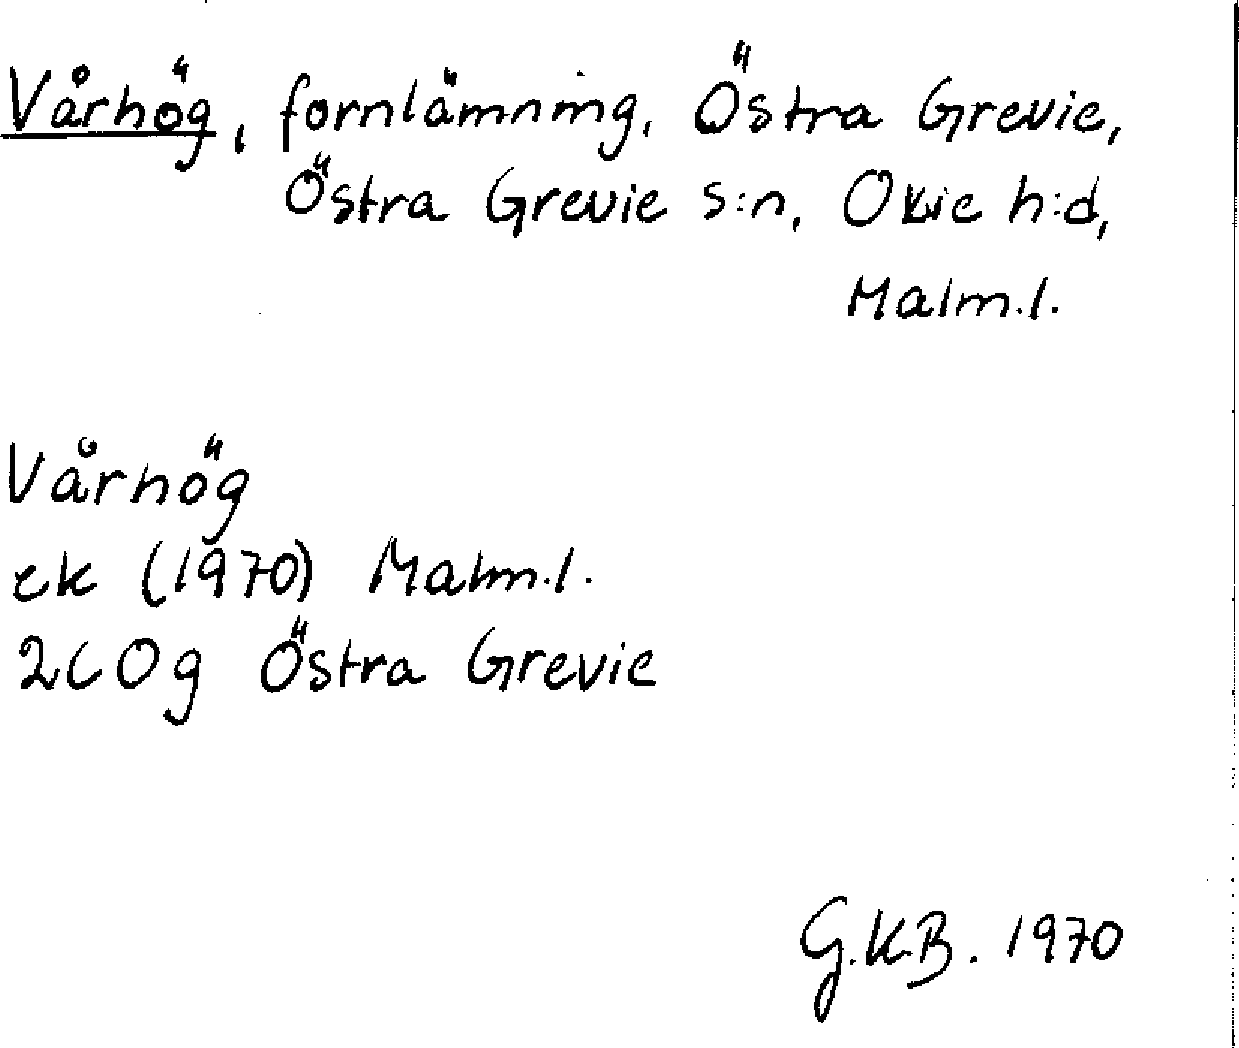 Vårhög, fornlämning, Östra Grevie,
Östra Grevie s:n, Oxie h:d,
Malm.l.
Vårhög
ek (1970) Malm.l.
2C0g Östra Grevie
G.K.B. 1970